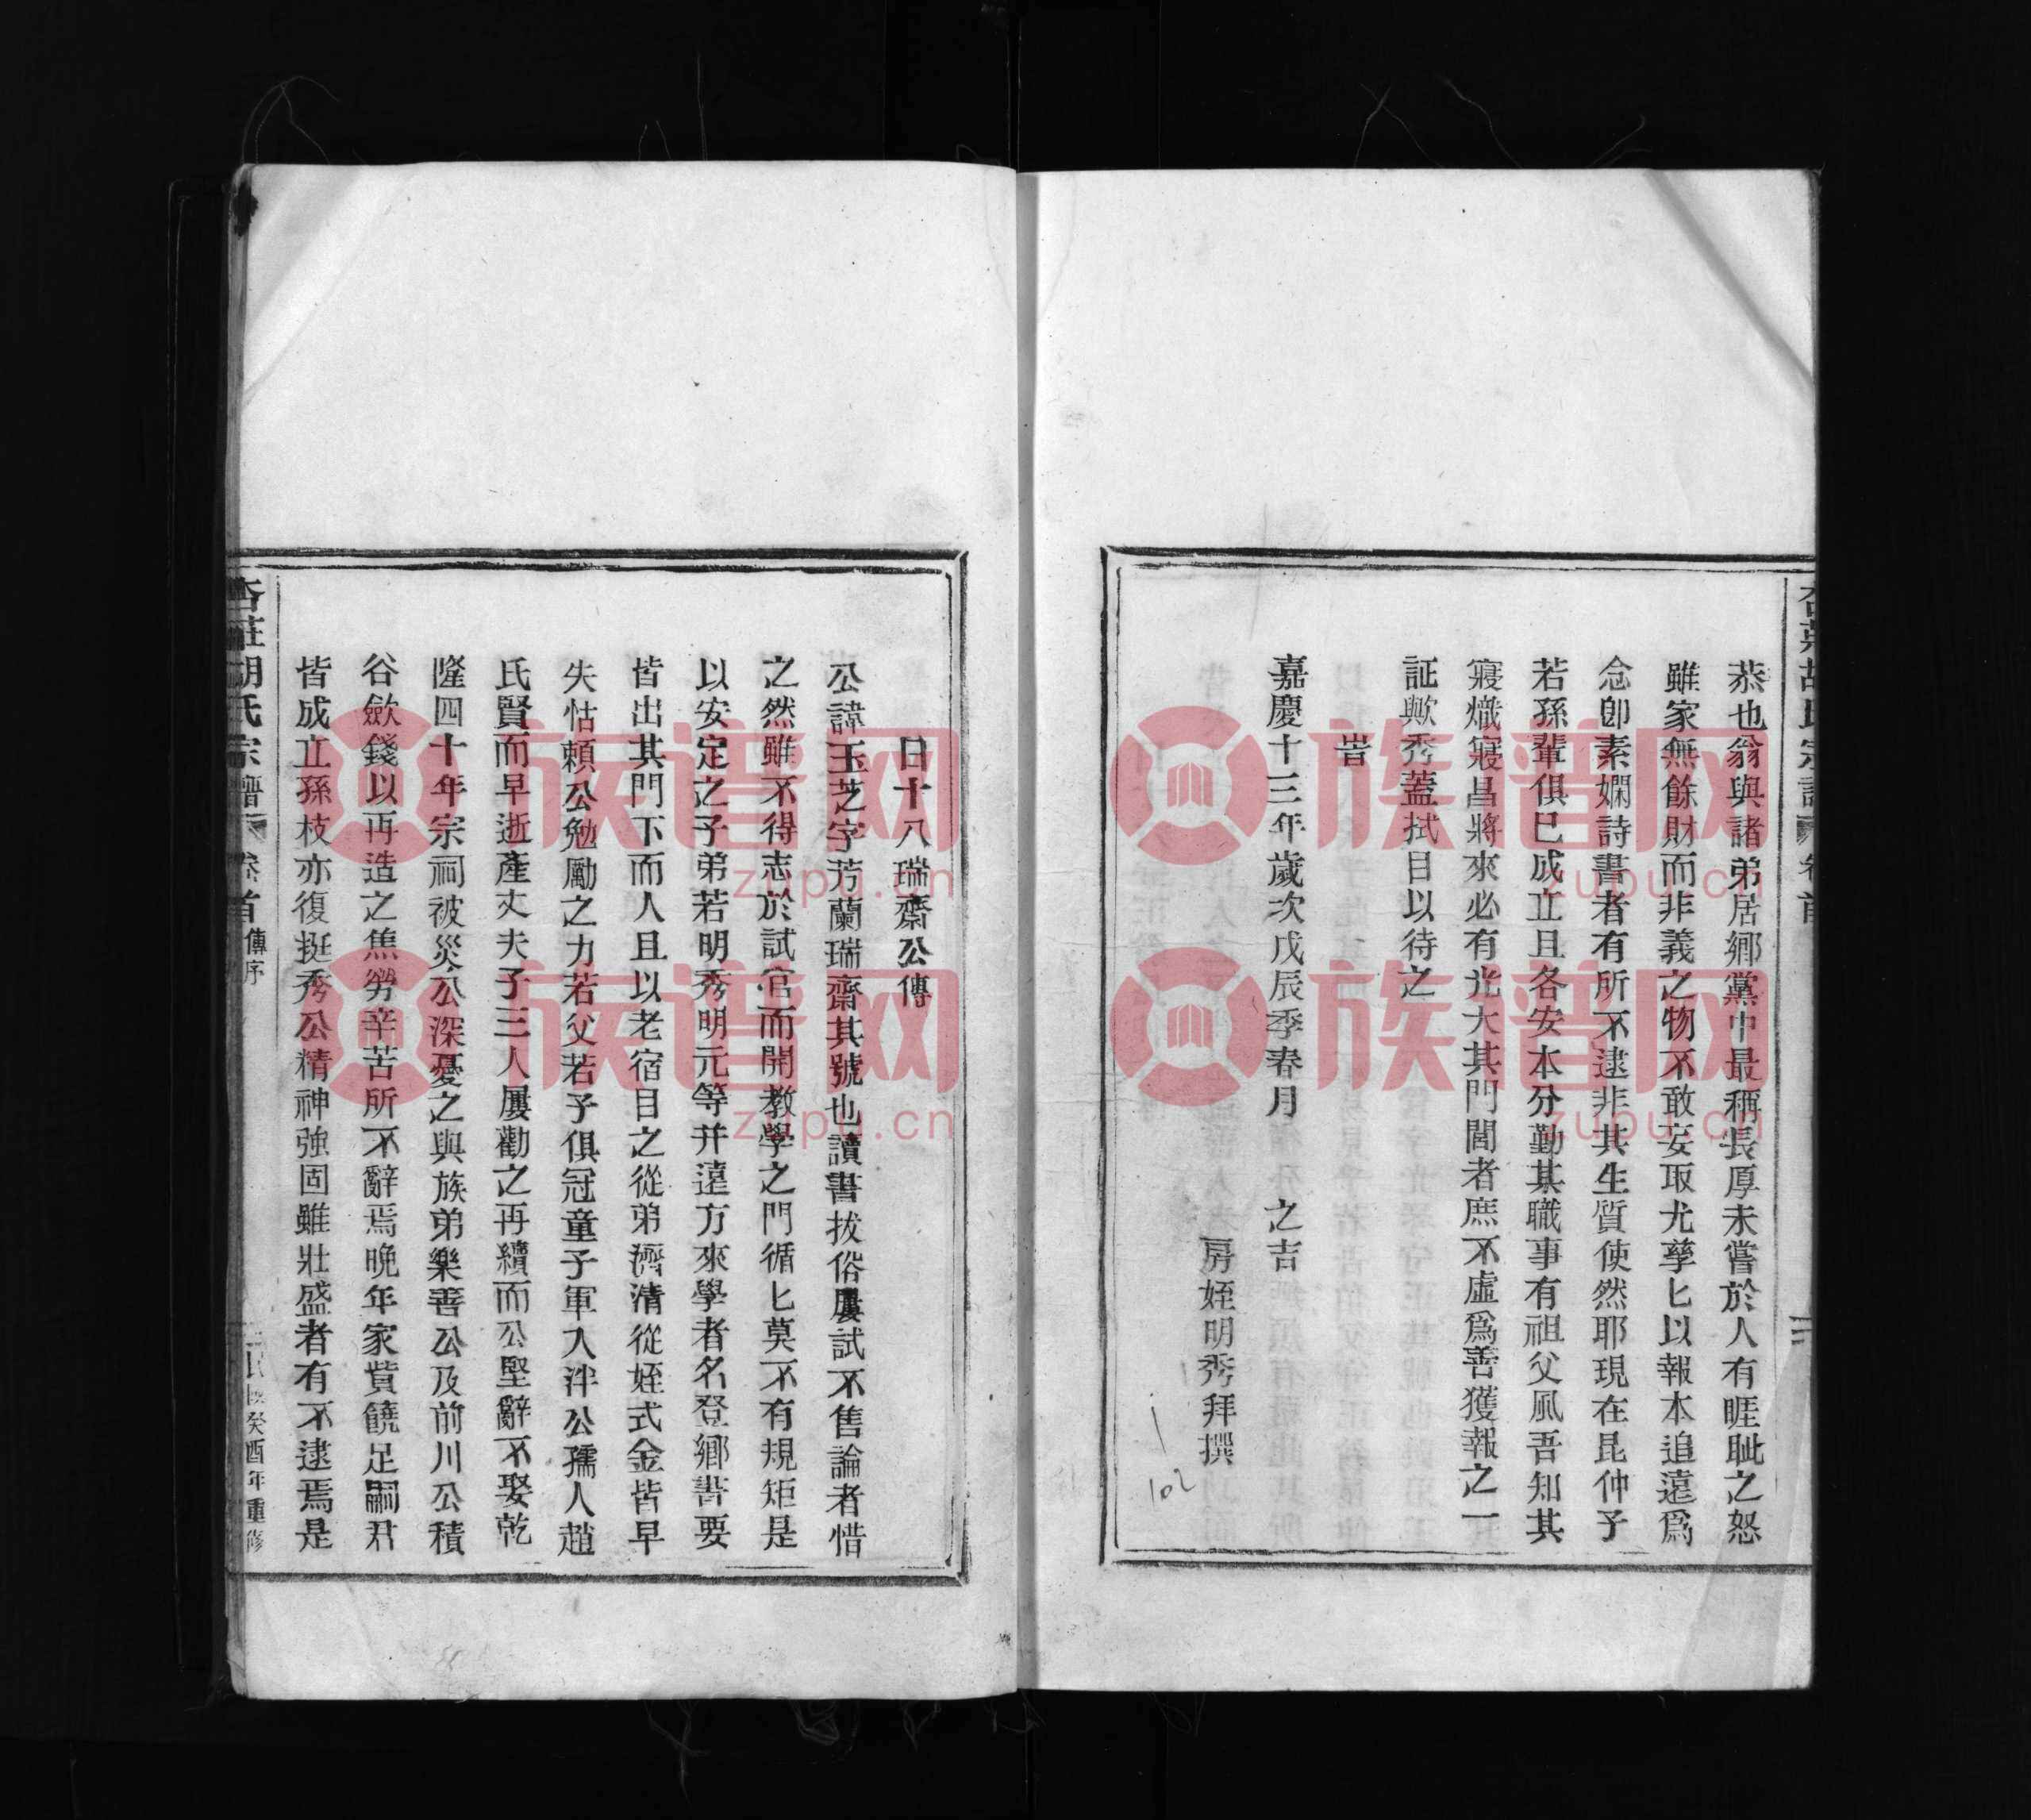 恭也翁與諸弟居鄉黨中最稱長厚未嘗於人有睚眦之怒
雖家無餘財而非義之物不敢妄取尤孳匕以報本追遠爲
念卽素嫻詩書者有所不逮非其生質使然耶現在昆仲子
若孫輩俱已成立且各安本分勤其職事有祖父風吾知其
寢熾寢昌將來必有光大其門閭者庶不虛爲善獲報之一
証歟秀蓋拭目以待之
旹
嘉慶十三年歲次戊辰季春月 之吉
房姪明秀拜撰
102
日十八瑞齋公傳
公諱玉芝字芳蘭瑞齋其號也讀書拔俗屢試不售論者惜
之然雖不得志於試官而開教學之門循匕莫不有規矩是
以安定之子弟若明秀明元等并遠方來學者名登鄉書要
皆出其門下而人且以老宿目之從弟濟清從姪式金皆早
失怙賴公勉勵之力若父若子俱冠童子軍入泮公孺人趙
氏賢而早逝產丈夫子三人屢勸之再續而公堅辭不娶乾
隆四十年宗祠被災公深憂之與族弟樂善公及前川公積
谷歛錢以再造之焦勞辛苦所不辭焉晚年家貲饒足嗣君
皆成立孫枝亦復挺秀公精神強固雖壯盛者有不逮焉是
杏莊胡氏宗譜 卷首 傳序 癸酉年重修
族谱网
zupu.cn
族谱网
zupu.cn
族谱网
zupu.cn
族谱网
zupu.cn